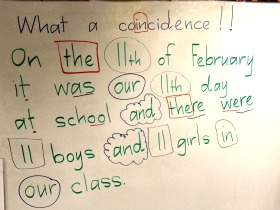 What a coincidence!!
On the 11th of February
it was our 11th day
at school and there were
11 boys and 11 girls in
our class.